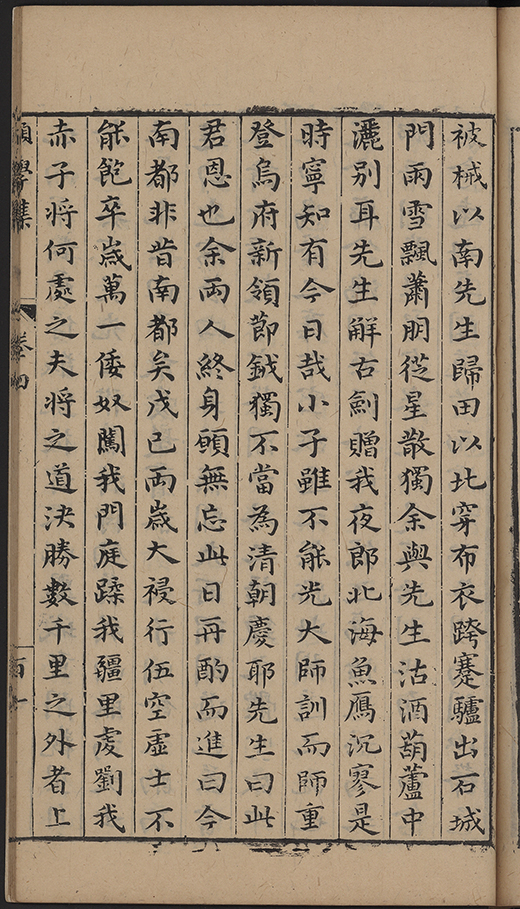 被械以南先生歸田以北穿布衣跨蹇驢出石城
門雨雪飄蕭朋從星散獨余與先生沽酒葫蘆中
灑別耳先生解古劍贈我夜郎北海魚鴈沉寥是
時寧知有今日哉小子雖不能光大師訓而師重
登烏府新領節鉞獨不當為清朝慶耶先生曰此
君恩也余兩人終身願無忘此日再酌而進曰今
南都非昔南都矣戊己兩歲大祲行伍空虛士不
能飽卒歲萬一倭奴闖我門庭蹂我疆里虔劉我
赤子將何處之夫將之道決勝數千里之外者上
學集
卷四
百一